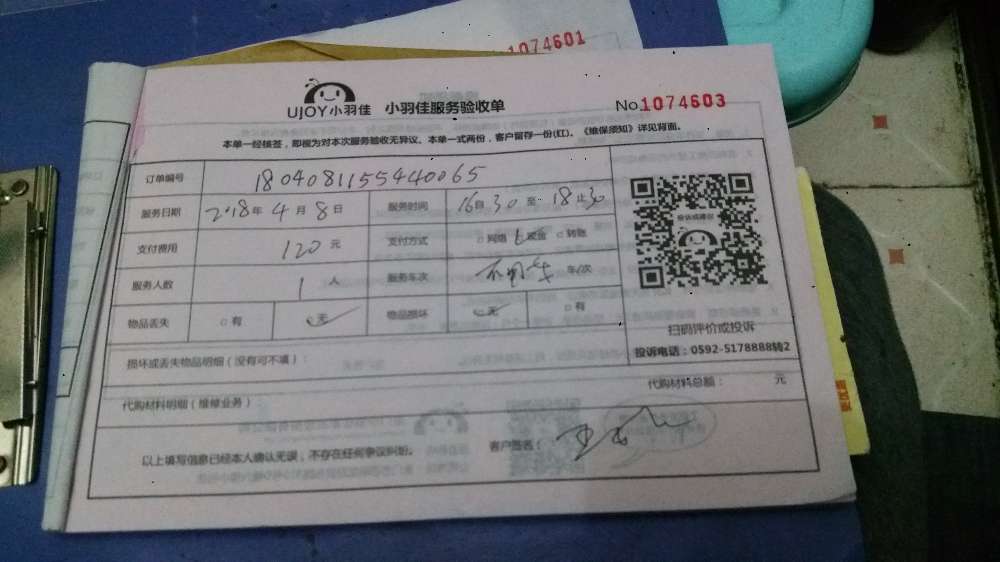 1074601
UJOY小羽佳 小羽佳服务验收单 No.1074603
本单一经核签，即视为对本次服务验收无异议。本单一式两份，客户留存一份(红)。《维保须知》详见背面。
订单编号 1804081155440065
服务日期 2018年4月8日 服务时间 16自30至18止30
支付费用 120元 支付方式 网络 现金 转账
服务人数 1人 服务车次 不用车 车/次
物品丢失 有 无 物品损坏 无 有
投诉或建议
扫码评价或投诉
投诉电话：0592-5178888转2
损坏或丢失物品明细（没有可不填）：
代购材料明细（维修业务）： 代购材料总额： 元
以上填写信息已经本人确认无误，不存在任何争议纠纷。 客户签名：